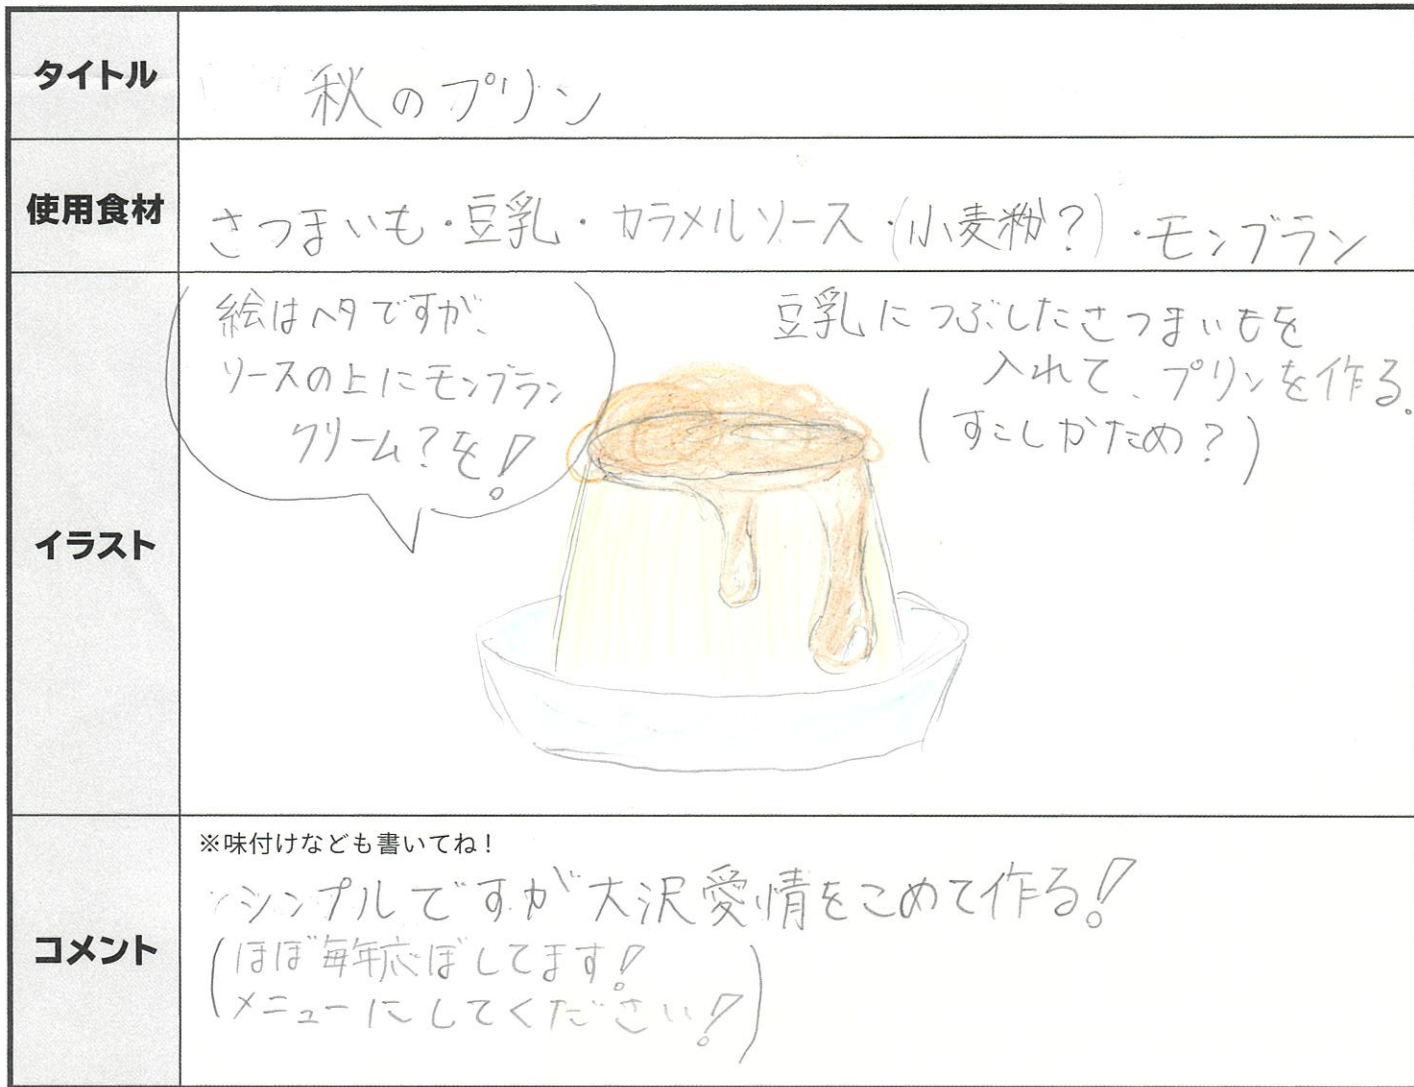 タイトル
秋のプリン
使用食材
さつまいも・豆乳・カラメルソース・(小麦粉?)・モンブラン
イラスト
絵はヘタですが、
ソースの上にモンブラン
クリーム?を!
豆乳につぶしたさつまいもを
入れて、プリンを作る。
(すこしかため?)
コメント
※味付けなども書いてね!
シンプルですが大沢愛情をこめて作る!
(ほぼ毎年応ぼしてます!
メニューにしてください!)